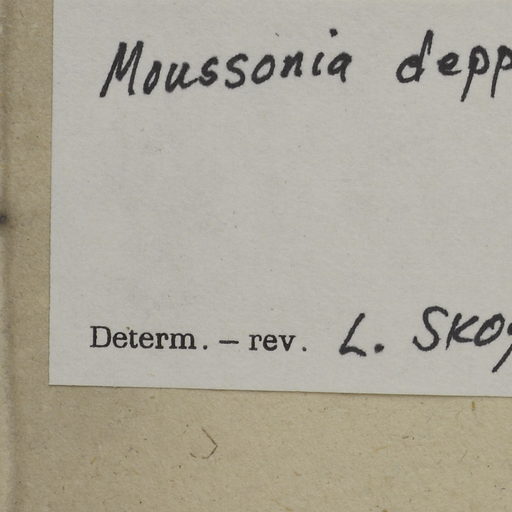 Moussonia depp
Determ. – rev. L. Skog